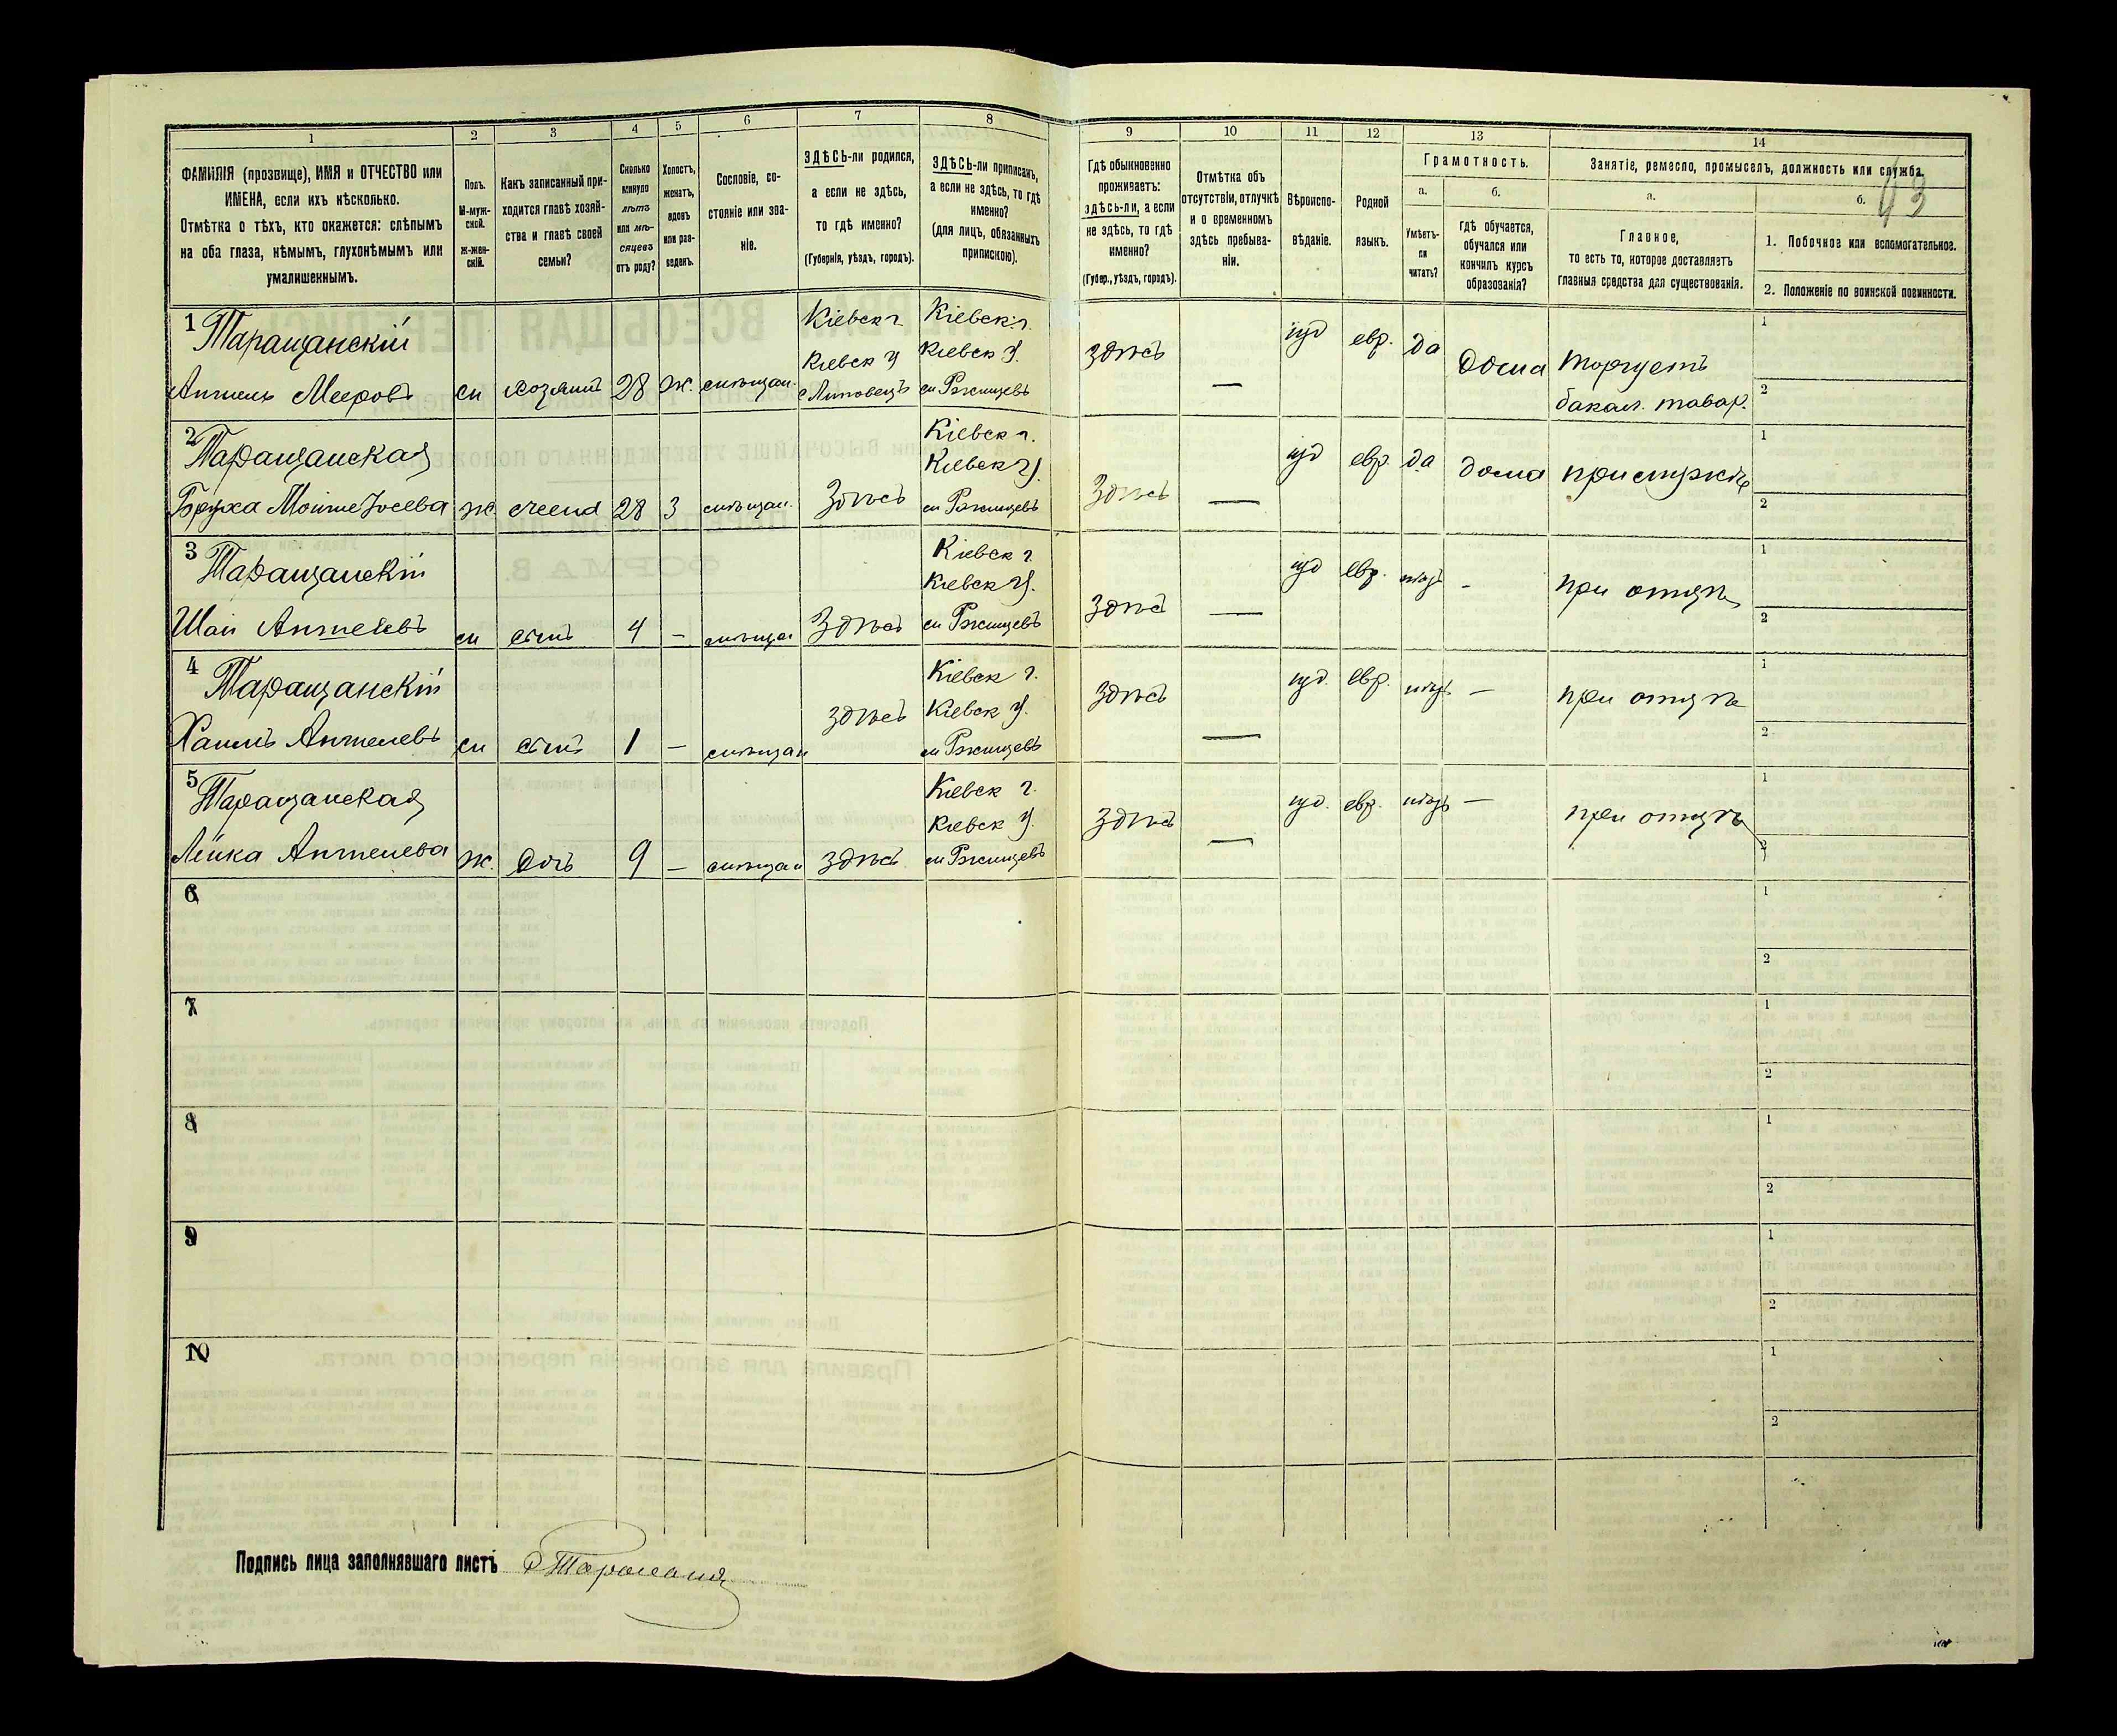 1
2
3
4
5
6
7
8
9
10
11
12
13
14
ФАМИЛІЯ (прозвище), ИМЯ и ОТЧЕСТВО или
ИМЕНА, если ихъ нѣсколько.
Отмѣтка о тѣхъ, кто окажется: слѣпымъ
на оба глаза, нѣмымъ, глухонѣмымъ или
умалишеннымъ.
Полъ.
М-муж-
ской.
Ж-жен-
скій.
Какъ записанный при-
ходится главѣ хозяй-
ства и главѣ своей
семьи?
Сколько
минуло
лѣтъ
или мѣ-
сяцевъ
отъ роду?
Холостъ,
женатъ,
вдовъ
или раз-
веденъ.
Сословіе, со-
стояніе или зва-
ніе.
ЗДѢСЬ-ли родился,
а если не здѣсь,
то гдѣ именно?
(Губернія, уѣздъ, городъ).
ЗДѢСЬ-ли приписанъ,
а если не здѣсь, то гдѣ
именно?
(для лицъ, обязанныхъ
припискою).
Гдѣ обыкновенно
проживаетъ:
здѣсь-ли, а если
не здѣсь, то гдѣ
именно?
(Губер., уѣздъ, городъ).
Отмѣтка объ
отсутствіи, отлучкѣ
и о временномъ
здѣсь пребыва-
ніи.
Вѣроиспо-
вѣданіе.
Родной
языкъ.
Грамотность.
а.
Умѣетъ-
ли
читать?
б.
гдѣ обучается,
обучался или
кончилъ курсъ
образованія?
Занятіе, ремесло, промыселъ, должность или служба.
43
а.
Главное,
то есть то, которое доставляетъ
главныя средства для существованія.
б.
1. Побочное или вспомогательное.
2. Положеніе по воинской повинности.
1 Таращанскій
Аншель Мееровъ
м хозяинъ 28 ж. мѣщан.
Кіевск г.
Кіевск У
с Липовецъ
Кіевск. г.
Кіевск У.
м Ржищевъ
здѣсь — іуд евр. да дома торгуетъ
бакал. товар.
1
2
2 Таращанская
Боруха Мойше Іосева
ж. жена 28 з мѣщан. Здѣсь
Кіевск г.
Кіевск У.
м Ржищевъ
Здѣсь — іуд евр. да дома при мужѣ
1
2
3 Таращанскій
Шая Аншелевъ
м сынъ 4 – мѣщан Здѣсь
Кіевск г.
Кіевск У.
м Ржищевъ
Здѣсь — іуд евр. нѣтъ – при отцѣ
1
2
4 Таращанскій
Хаимъ Аншелевъ
м сынъ 1 – мѣщан здѣсь
Кіевск г.
Кіевск У.
м Ржищевъ
здѣсь — іуд. евр. нѣтъ — при отцѣ
1
2
5 Таращанская
Лейка Аншелева
ж. дочь 9 – мѣщан здѣсь
Кіевск г.
Кіевск У.
м Ржищевъ
здѣсь — іуд. евр. нѣтъ — при отцѣ
1
2
6
1
2
7
1
2
8
1
2
9
1
2
10
1
2
Подпись лица заполнявшаго листъ